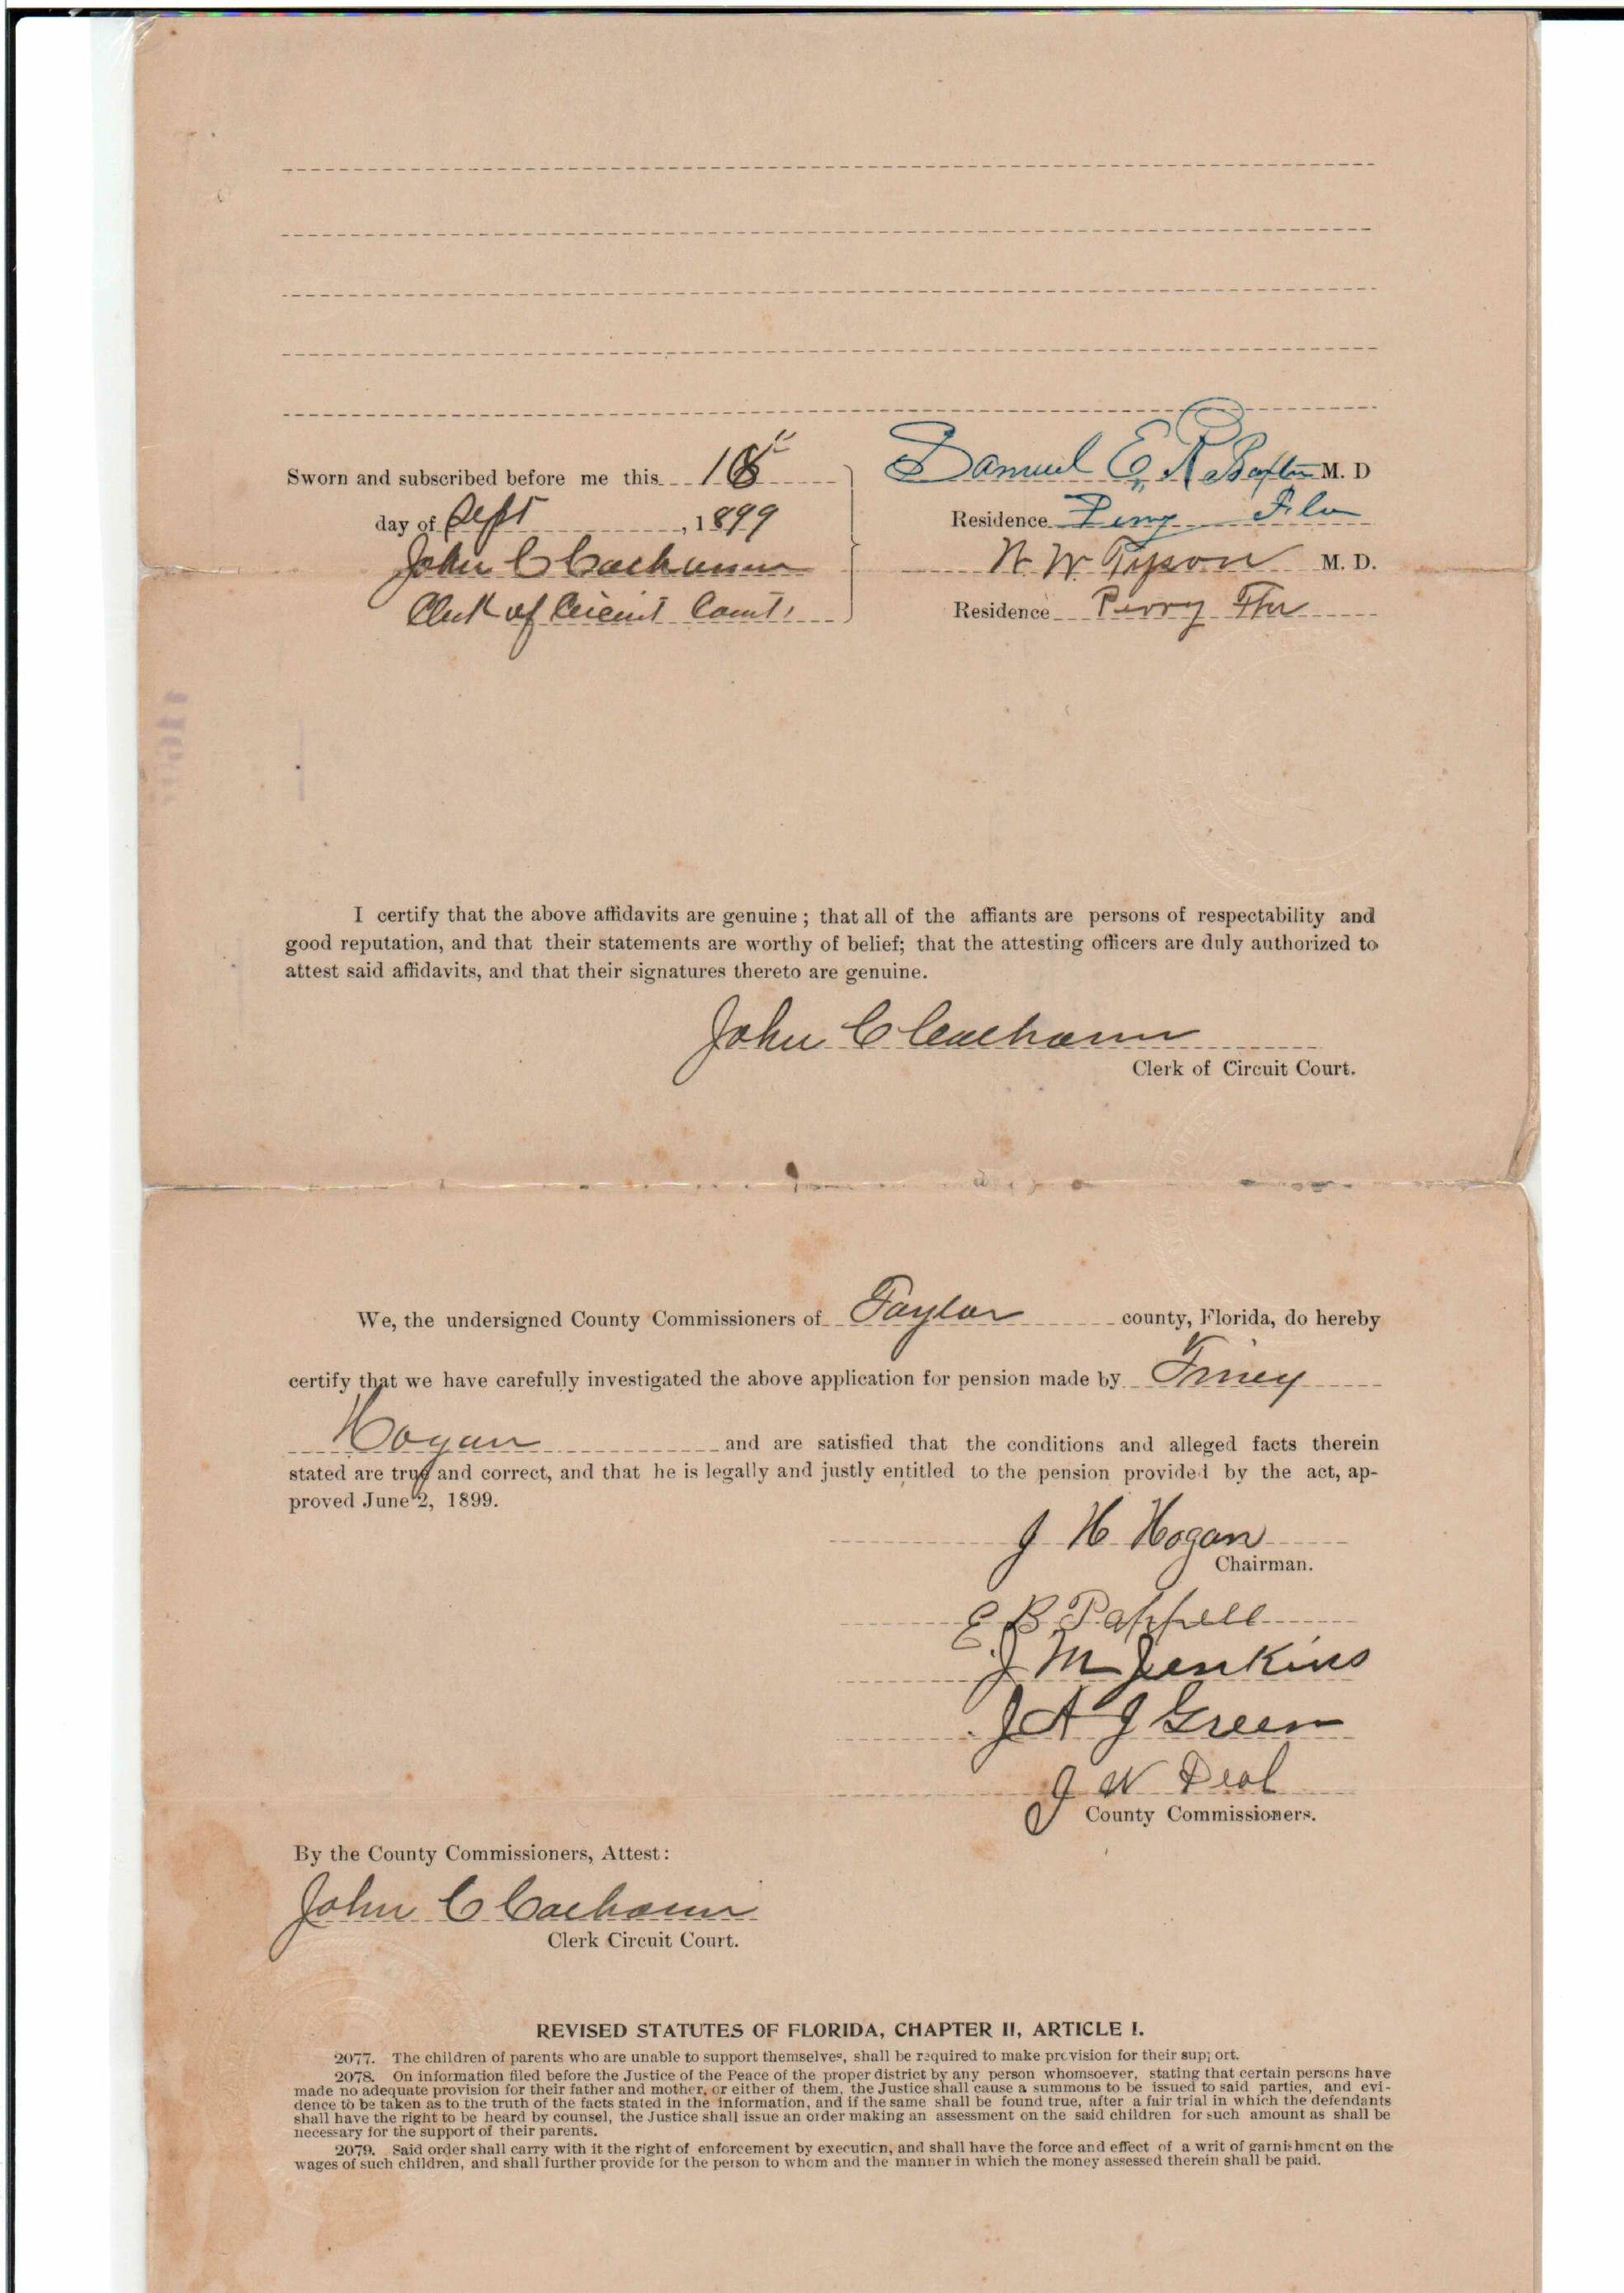 Sworn and subscribed before me this 18"
Samuel E. M. D
day of Sept, 1899
Residence Perry Fla
John C Calhoun
N. W. Tyson M. D.
Clerk of Circuit Court.
Residence Perry Fla
I certify that the above affidavits are genuine; that all of the affiants are persons of respectability and
good reputation, and that their statements are worthy of belief; that the attesting officers are duly authorized to
attest said affidavits, and that their signatures thereto are genuine.
John C Calhoun
Clerk of Circuit Court.
We, the undersigned County Commissioners of Taylor county, Florida, do hereby
certify that we have carefully investigated the above application for pension made by
Hogan and are satisfied that the conditions and alleged facts therein
stated are true and correct, and that he is legally and justly entitled to the pension provided by the act, ap-
proved June 2, 1899.
J H Hogan
Chairman.
E B Pappell
J M Jenkins
J A J Green
J W Deal
County Commissioners.
By the County Commissioners, Attest:
John C Calhoun
Clerk Circuit Court.
REVISED STATUTES OF FLORIDA, CHAPTER II, ARTICLE I.
2077. The children of parents who are unable to support themselves, shall be required to make provision for their support.
2078. On information filed before the Justice of the Peace of the proper district by any person whomsoever, stating that certain persons have
made no adequate provision for their father and mother, or either of them, the Justice shall cause a summons to be issued to said parties, and evi-
dence to be taken as to the truth of the facts stated in the information, and if the same shall be found true, after a fair trial in which the defendants
shall have the right to be heard by counsel, the Justice shall issue an order making an assessment on the said children for such amount as shall be
necessary for the support of their parents.
2079. Said order shall carry with it the right of enforcement by execution, and shall have the force and effect of a writ of garnishment on the
wages of such children, and shall further provide for the person to whom and the manner in which the money assessed therein shall be paid.